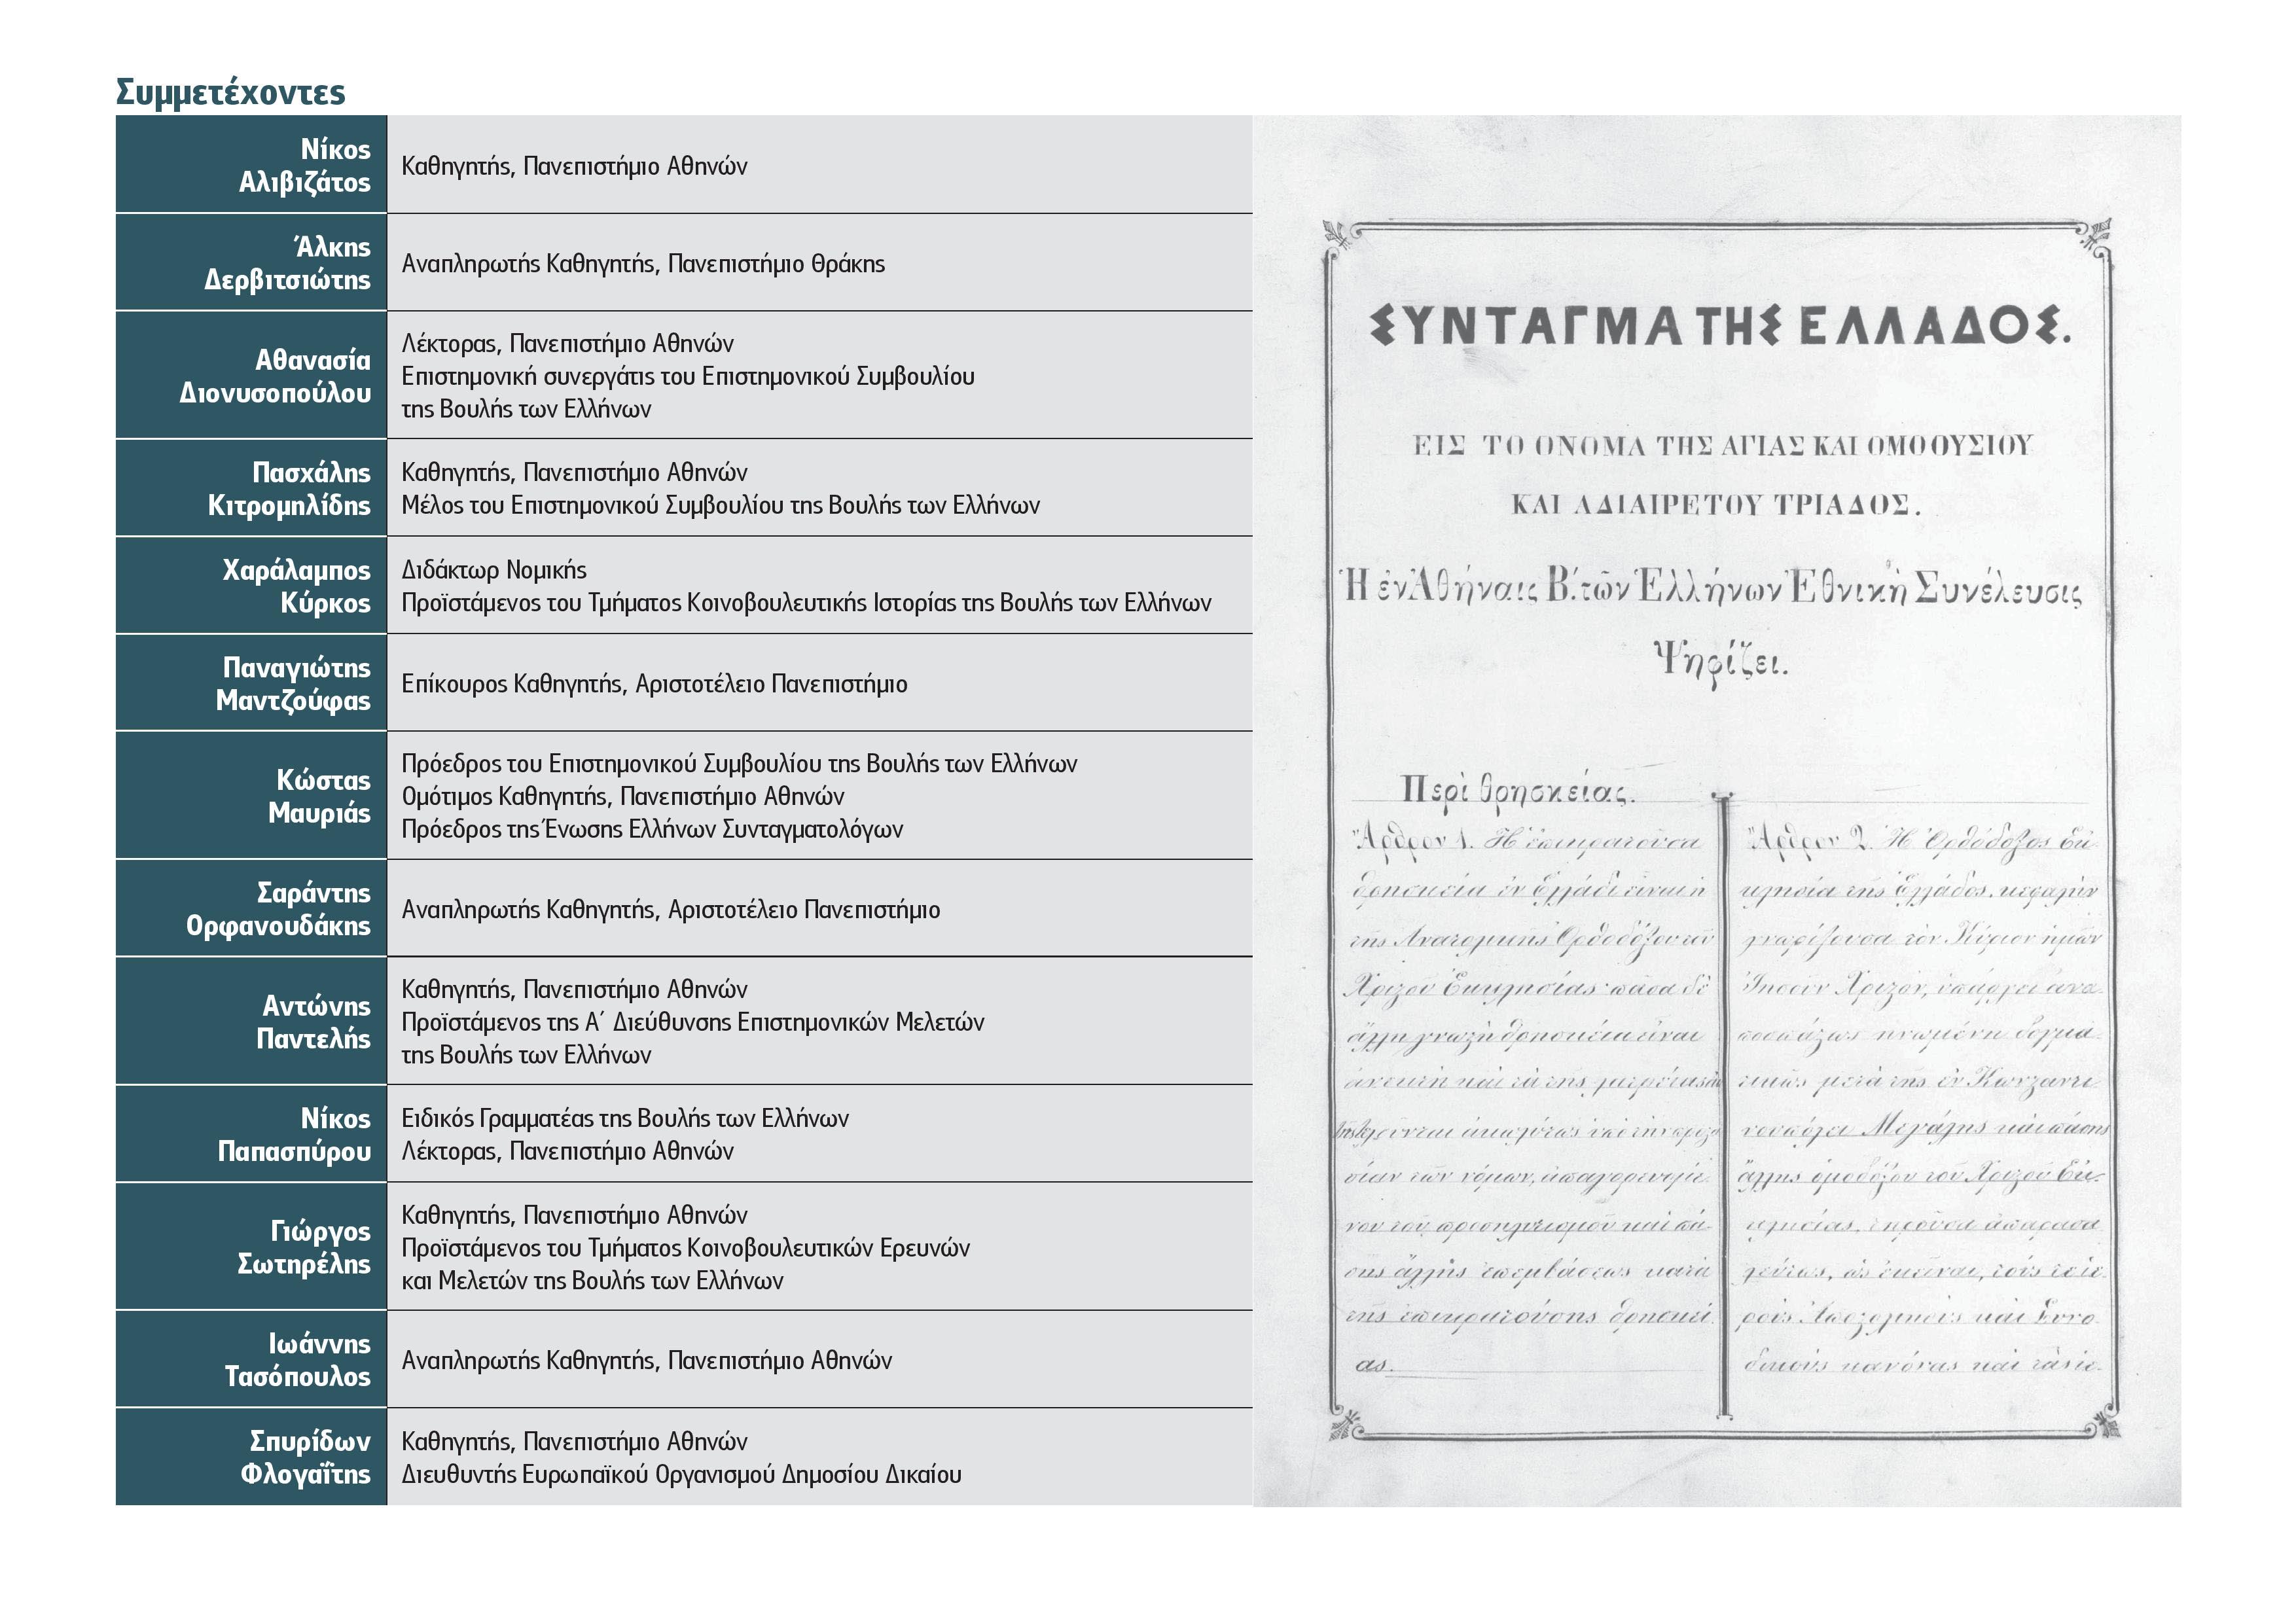 Συμμετέχοντες
Νίκος
Αλιβιζάτος
Καθηγητής, Πανεπιστήμιο Αθηνών
Άλκης
Δερβιτσιώτης
Αναπληρωτής Καθηγητής, Πανεπιστήμιο Θράκης
Αθανασία
Διονυσοπούλου
Λέκτορας, Πανεπιστήμιο Αθηνών
Επιστημονική συνεργάτις του Επιστημονικού Συμβουλίου
της Βουλής των Ελλήνων
Πασχάλης
Κιτρομηλίδης
Καθηγητής, Πανεπιστήμιο Αθηνών
Μέλος του Επιστημονικού Συμβουλίου της Βουλής των Ελλήνων
Χαράλαμπος
Κύρκος
Διδάκτωρ Νομικής
Προϊστάμενος του Τμήματος Κοινοβουλευτικής Ιστορίας της Βουλής των Ελλήνων
Παναγιώτης
Μαντζούφας
Επίκουρος Καθηγητής, Αριστοτέλειο Πανεπιστήμιο
Κώστας
Μαυριάς
Πρόεδρος του Επιστημονικού Συμβουλίου της Βουλής των Ελλήνων
Ομότιμος Καθηγητής, Πανεπιστήμιο Αθηνών
Πρόεδρος της Ένωσης Ελλήνων Συνταγματολόγων
Σαράντης
Ορφανουδάκης
Αναπληρωτής Καθηγητής, Αριστοτέλειο Πανεπιστήμιο
Αντώνης
Παντελής
Καθηγητής, Πανεπιστήμιο Αθηνών
Προϊστάμενος της Α΄ Διεύθυνσης Επιστημονικών Μελετών
της Βουλής των Ελλήνων
Νίκος
Παπασπύρου
Ειδικός Γραμματέας της Βουλής των Ελλήνων
Λέκτορας, Πανεπιστήμιο Αθηνών
Γιώργος
Σωτηρέλης
Καθηγητής, Πανεπιστήμιο Αθηνών
Προϊστάμενος του Τμήματος Κοινοβουλευτικών Ερευνών
και Μελετών της Βουλής των Ελλήνων
Ιωάννης
Τασόπουλος
Αναπληρωτής Καθηγητής, Πανεπιστήμιο Αθηνών
Σπυρίδων
Φλογαΐτης
Καθηγητής, Πανεπιστήμιο Αθηνών
Διευθυντής Ευρωπαϊκού Οργανισμού Δημοσίου Δικαίου
ΣΥΝΤΑΓΜΑ ΤΗΣ ΕΛΛΑΔΟΣ.
ΕΙΣ ΤΟ ΟΝΟΜΑ ΤΗΣ ΑΓΙΑΣ ΚΑΙ ΟΜΟΟΥΣΙΟΥ
ΚΑΙ ΑΔΙΑΙΡΕΤΟΥ ΤΡΙΑΔΟΣ.
Ἡ ἐν Ἀθήναις Β΄. τῶν Ἑλλήνων Ἐθνικὴ Συνέλευσις
Ψηφίζει.
Περὶ θρησκείας.
Ἄρθρον 1. Ἡ ἐπικρατοῦσα
θρησκεία ἐν Ἑλλάδι εἶναι ἡ
τῆς Ἀνατολικῆς Ὀρθοδόξου τοῦ
Χριστοῦ Ἐκκλησίας· πᾶσα δὲ
ἄλλη γνωστὴ θρησκεία εἶναι
ἀνεκτὴ καὶ τὰ τῆς
σίαν τῶν νόμων, ἀπαγορευομέ-
νου τοῦ προσηλυτισμοῦ καὶ πά-
σης ἄλλης ἐπεμβάσεως κατὰ
τῆς ἐπικρατούσης θρησκεί
ας.
Ἄρθρον 2. Ἡ Ὀρθόδοξος Ἐκ-
κλησία τῆς Ἑλλάδος, κεφαλὴν
γνωρίζουσα τὸν Κύριον ἡμῶν
Ἰησοῦν Χριστόν, ὑπάρχει ἀνα-
ποσπάστως ἡνωμένη δογμα-
τικῶς μετὰ τῆς ἐν Κωνσταντι-
νουπόλει Μεγάλης καὶ πάσης
ἄλλης ὁμοδόξου τοῦ Χριστοῦ Ἐκ-
κλησίας, τηροῦσα ἀπαρασα-
λεύτως, ὡς ἐκεῖναι, τούς τε ἱε-
ροὺς Ἀποστολικοὺς καὶ Συνο-
δικοὺς κανόνας καὶ τὰς ἱε-